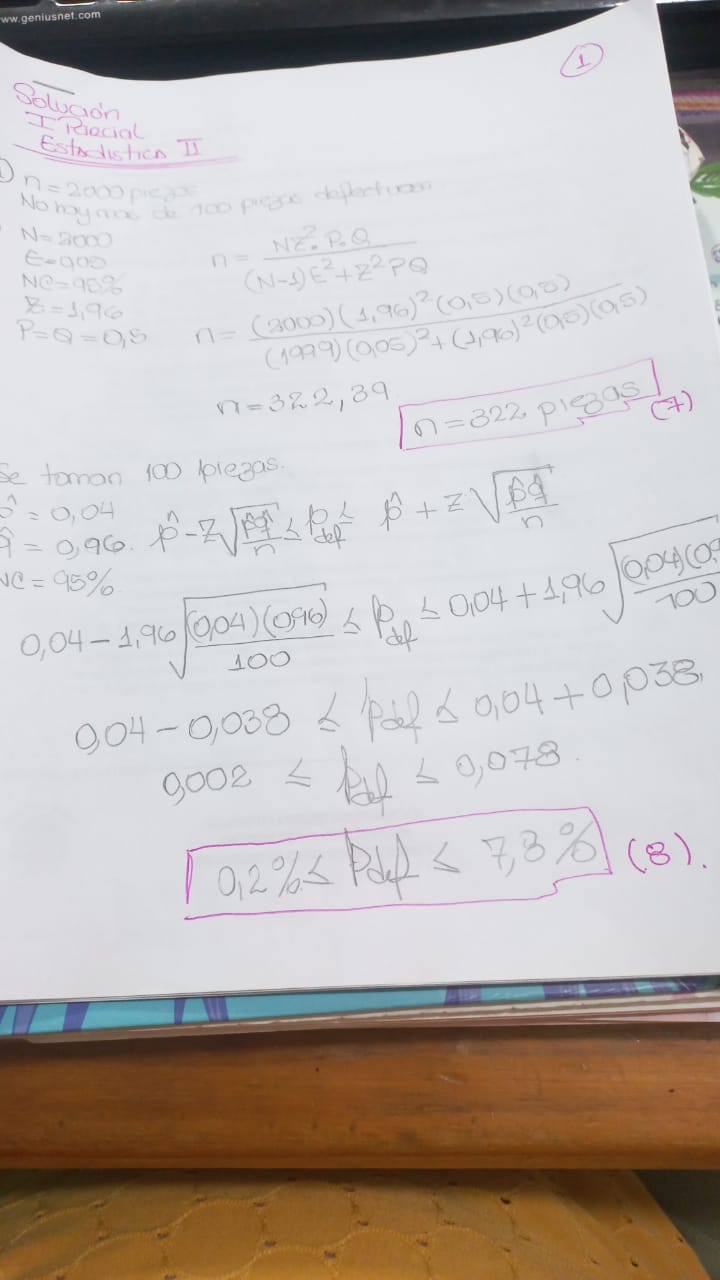 ww.geniusnet.com
1
Solución
I Parcial
Estadística II
1) n = 2000 piezas
No hay mas de 100 piezas defectuosas
N = 2000
E = 0,05
NC = 95%
Z = 1,96
P = Q = 0,5
n = NZ². P.Q / (N-1)E² + Z²PQ
n = (2000)(1,96)²(0,5)(0,5) / (1999)(0,05)² + (1,96)²(0,5)(0,5)
n = 322,39
n = 322 piezas (7)
Se toman 100 piezas.
p̂ = 0,04
q̂ = 0,96.
NC = 95%
p̂ - Z√(p̂q̂/n) ≤ Pdef ≤ p̂ + Z√(p̂q̂/n)
0,04 - 1,96√((0,04)(0,96)/100) ≤ Pdef ≤ 0,04 + 1,96√((0,04)(0,9/100
0,04 - 0,038 ≤ Pdef ≤ 0,04 + 0,038.
0,002 ≤ Pdef ≤ 0,078.
0,2% ≤ Pdef ≤ 7,8% (8).